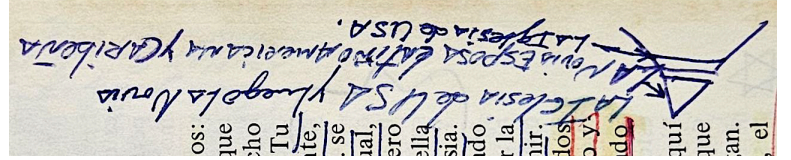 LA Iglesia de USA y Luego LA Novia
LA Novia ESPOSA Latinoamericana y Caribeña
LA Iglesia de USA.
os:
que
cho
Tu
nte,
se
ual,
ero
ella
sia.
ndo
r la
nir.
dos
o y
ndo
quí
que
an.
, el